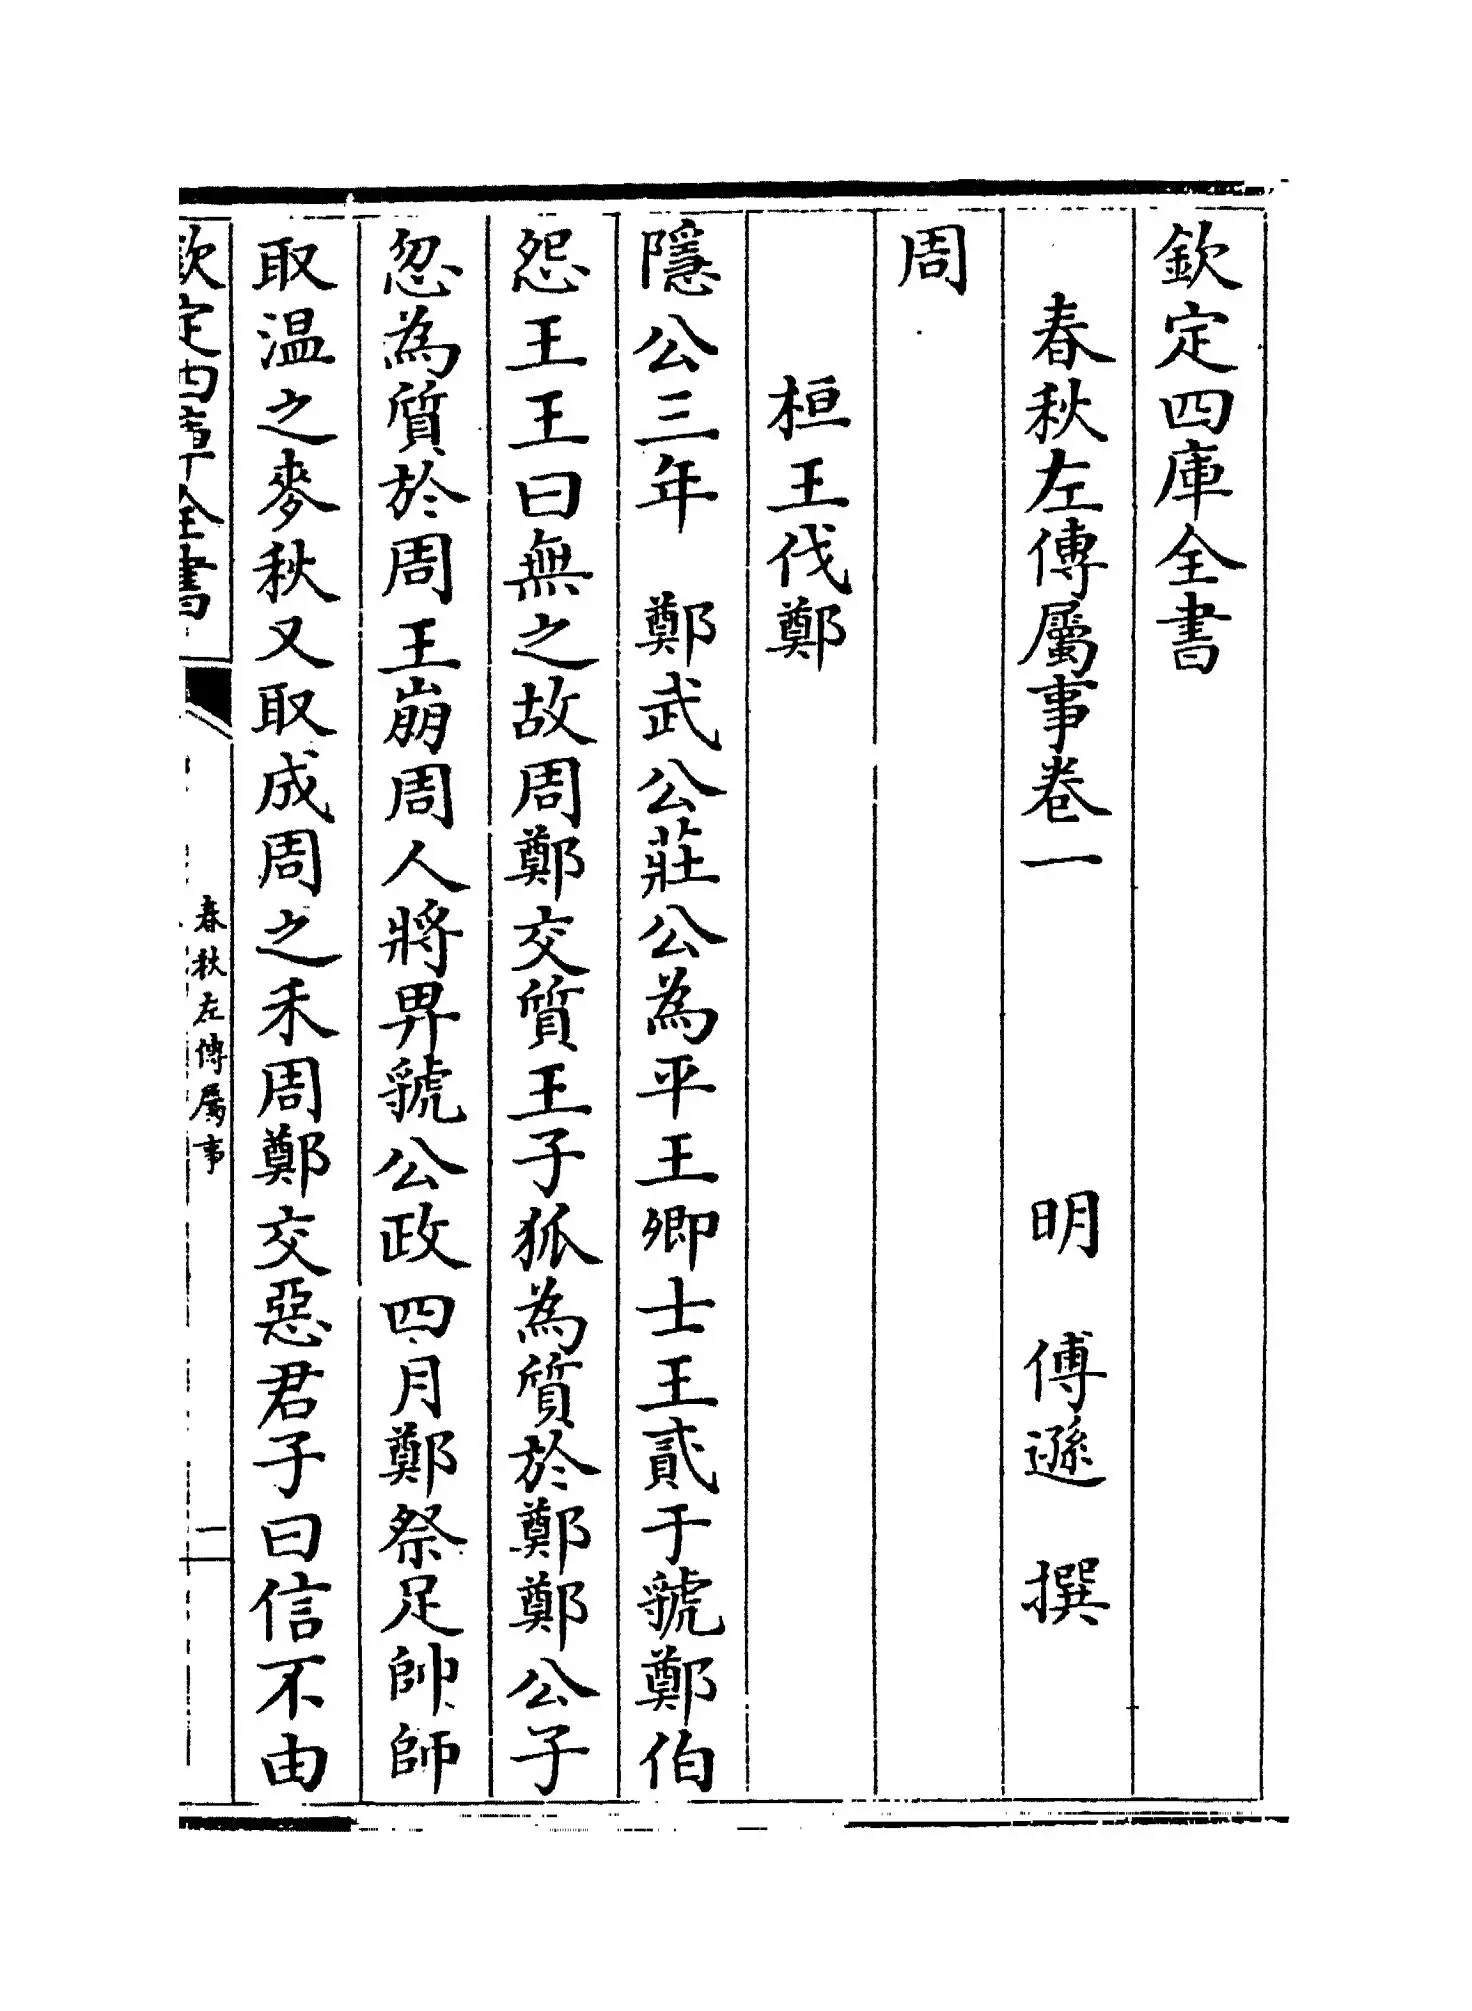 欽定四庫全書
春秋左傳屬事卷一　明　傅遜　撰
周
桓王伐鄭
隱公三年　鄭武公莊公為平王卿士王貳于虢鄭伯
怨王王曰無之故周鄭交質王子狐為質於鄭鄭公子
忽為質於周王崩周人將畀虢公政四月鄭祭足帥師
取温之麥秋又取成周之禾周鄭交惡君子曰信不由
欽定四庫全書
春秋左傳屬事
一